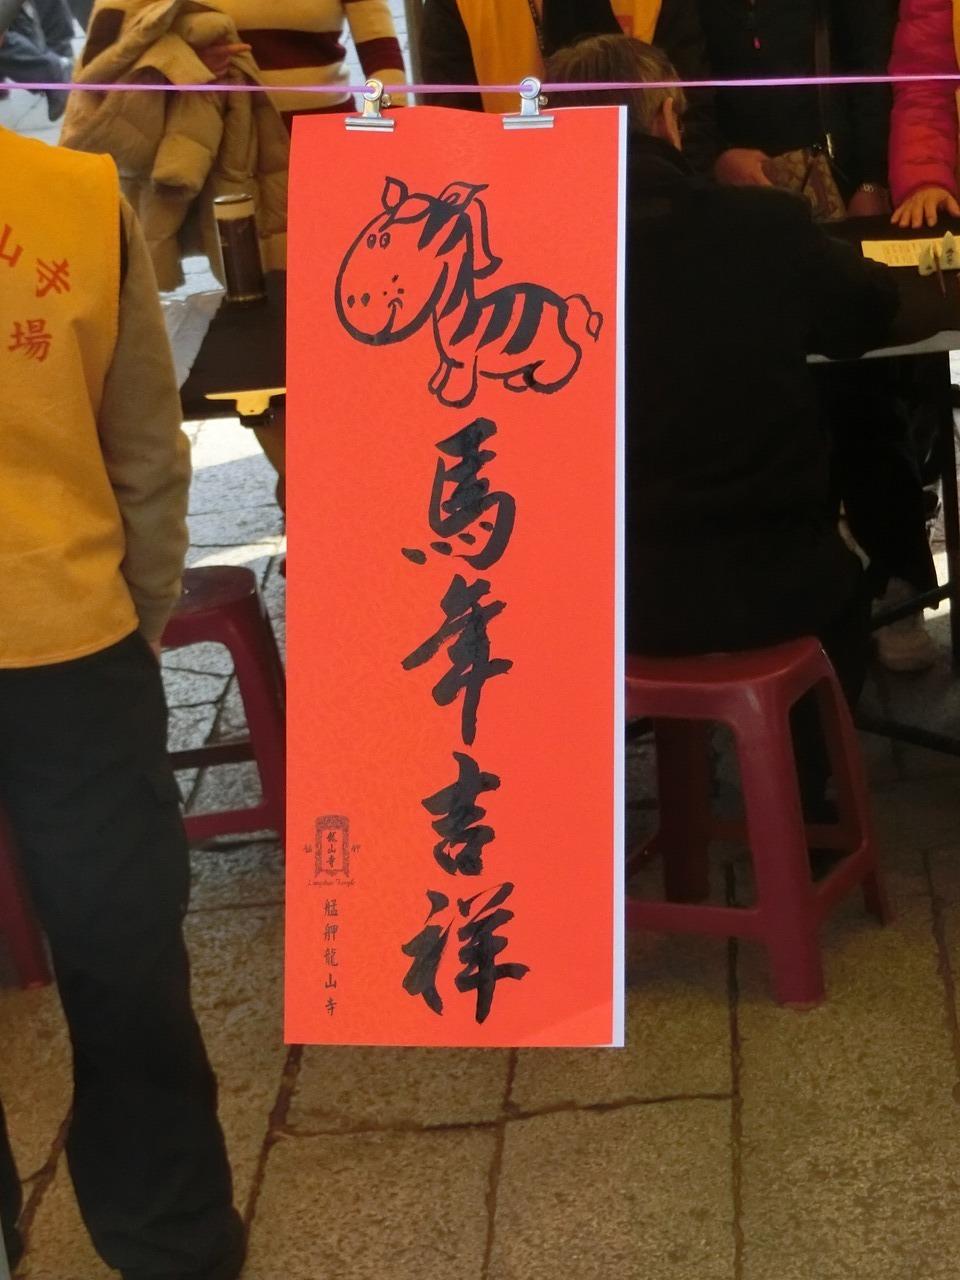 馬年吉祥
艋舺
龍山寺
Lungshan Temple
艋舺龍山寺
山寺
場